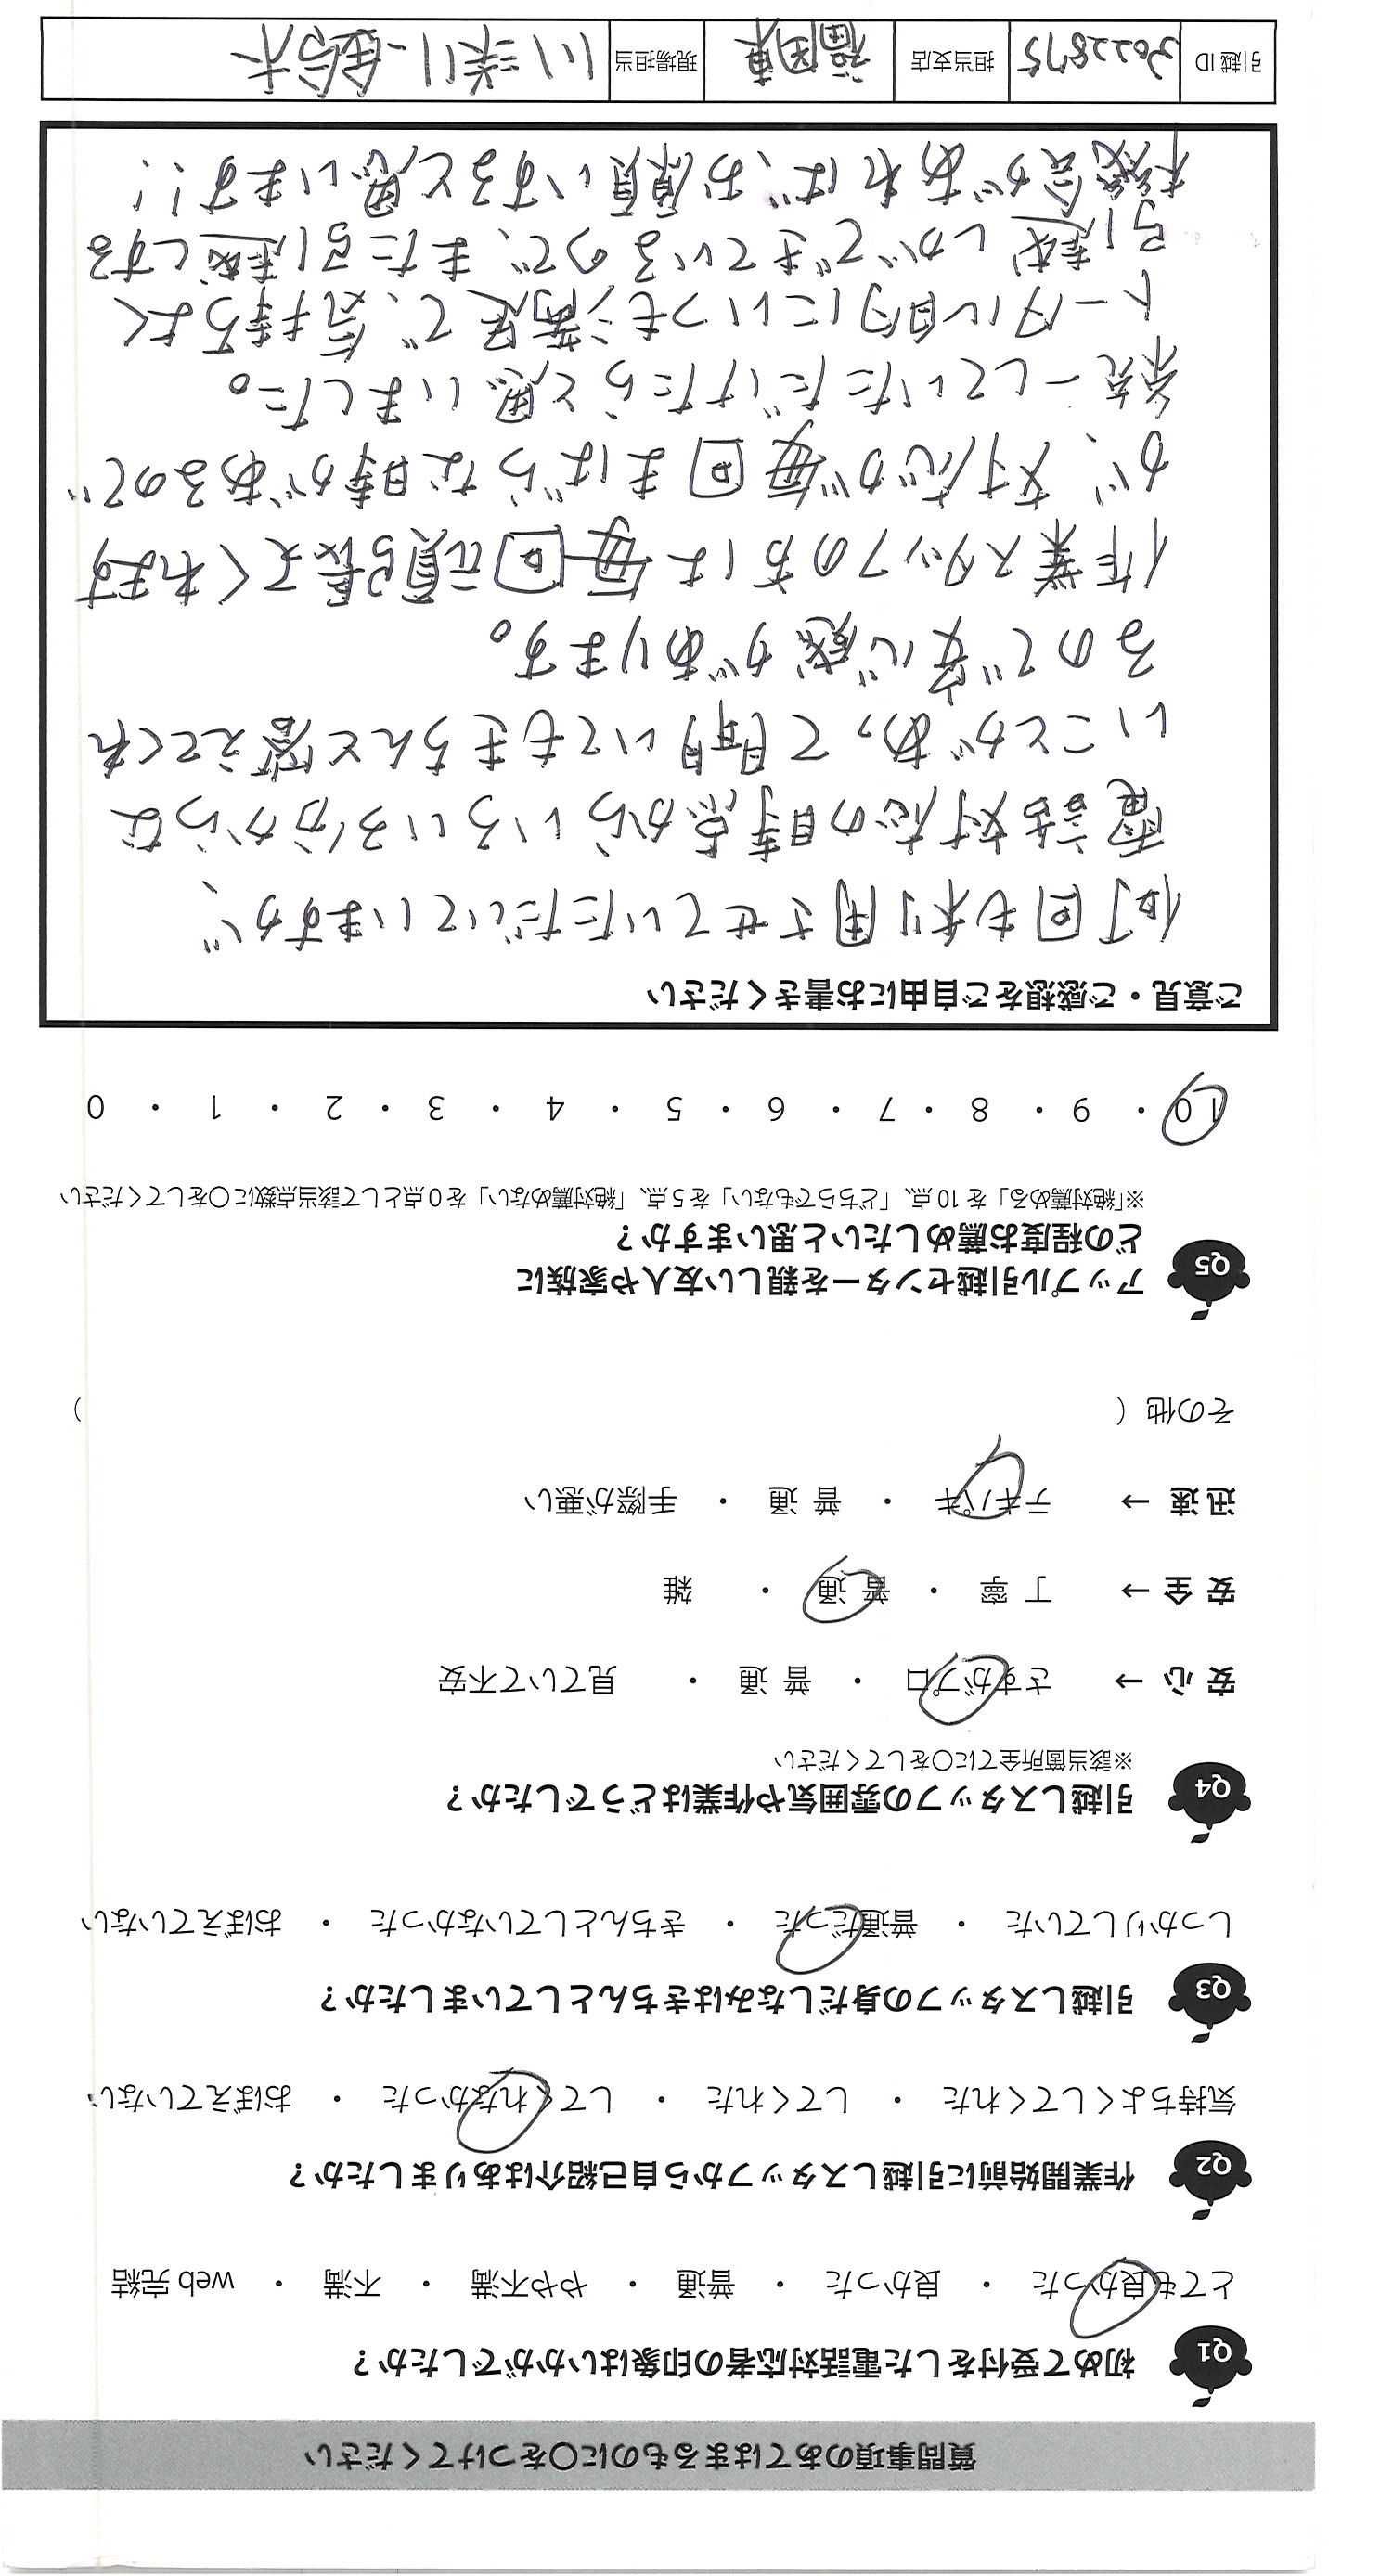 質問事項のあてはまるものに〇をつけてください
Q1 初めて受付をした電話対応者の印象はいかがでしたか？
とても良かった ・ 良かった ・ 普通 ・ やや不満 ・ 不満 ・ web完結
Q2 作業開始前に引越しスタッフから自己紹介はありましたか？
気持ちよくしてくれた ・ してくれた ・ してくれなかった ・ おぼえていない
Q3 引越しスタッフの身だしなみはきちんとしていましたか？
しっかりしていた ・ 普通だった ・ きちんとしていなかった ・ おぼえていない
Q4 引越しスタッフの雰囲気や作業はどうでしたか？
※該当箇所全てに〇をしてください
安 心 → さすがプロ ・ 普 通 ・ 見ていて不安
安 全 → 丁 寧 ・ 普 通 ・ 雑
迅 速 → テキパキ ・ 普 通 ・ 手際が悪い
その他（ ）
Q5 アップル引越センターを親しい友人や家族に
どの程度お薦めしたいと思いますか？
※「絶対薦める」を10点、「どちらでもない」を5点、「絶対薦めない」を0点として該当点数に〇をしてください
10 ・ 9 ・ 8 ・ 7 ・ 6 ・ 5 ・ 4 ・ 3 ・ 2 ・ 1 ・ 0
ご意見・ご感想をご自由にお書きください
何回も利用させていただいていますが、
電話対応の時点からいろいろ分からな
いことがあって聞いてもきちんと答えてくれ
るので安心感があります。
作業スタッフの方は毎回頑張ってくれます
が、対応が毎回まばらな時があるので
統一していただけたらと思いました。
トータル的にいつも満足で、気持ちよく
引越しができているので、また引越しする
機会があれば、お願いすると思います！！
引越ID 3022875 担当支店 福岡東 現場担当 川添・鈴木